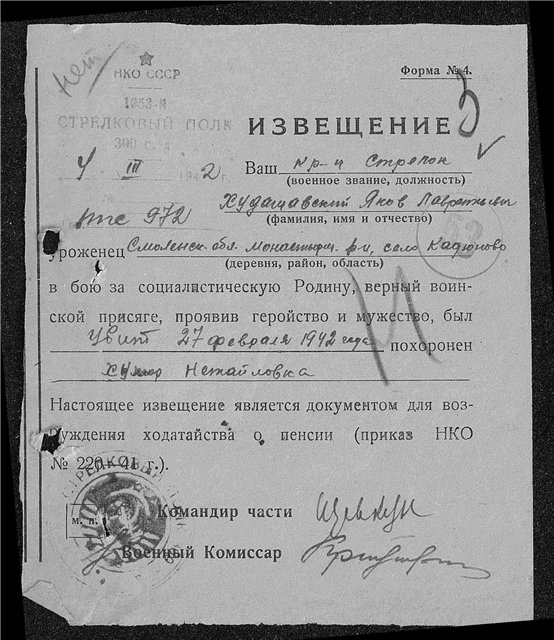 нет
НКО СССР
Форма № 4.
1053-й
СТРЕЛКОВЫЙ ПОЛК
ИЗВЕЩЕНИЕ
4 III 1942
Ваш кр-ц Стрелок
(военное звание, должность)
Яков
№ 972
(фамилия, имя и отчество)
уроженец Смоленск. обл. Монастырщ. р-н, село Кадюково
(деревня, район, область)
в бою за социалистическую Родину, верный воин-
ской присяге, проявив геройство и мужество, был
Убит 27 февраля 1942 года похоронен
Нетайловка
Настоящее извещение является документом для воз-
буждения ходатайства о пенсии (приказ НКО
№ 220—41 г.).
СТРЕЛКОВЫЙ
м. п.
Командир части
Военный Комиссар